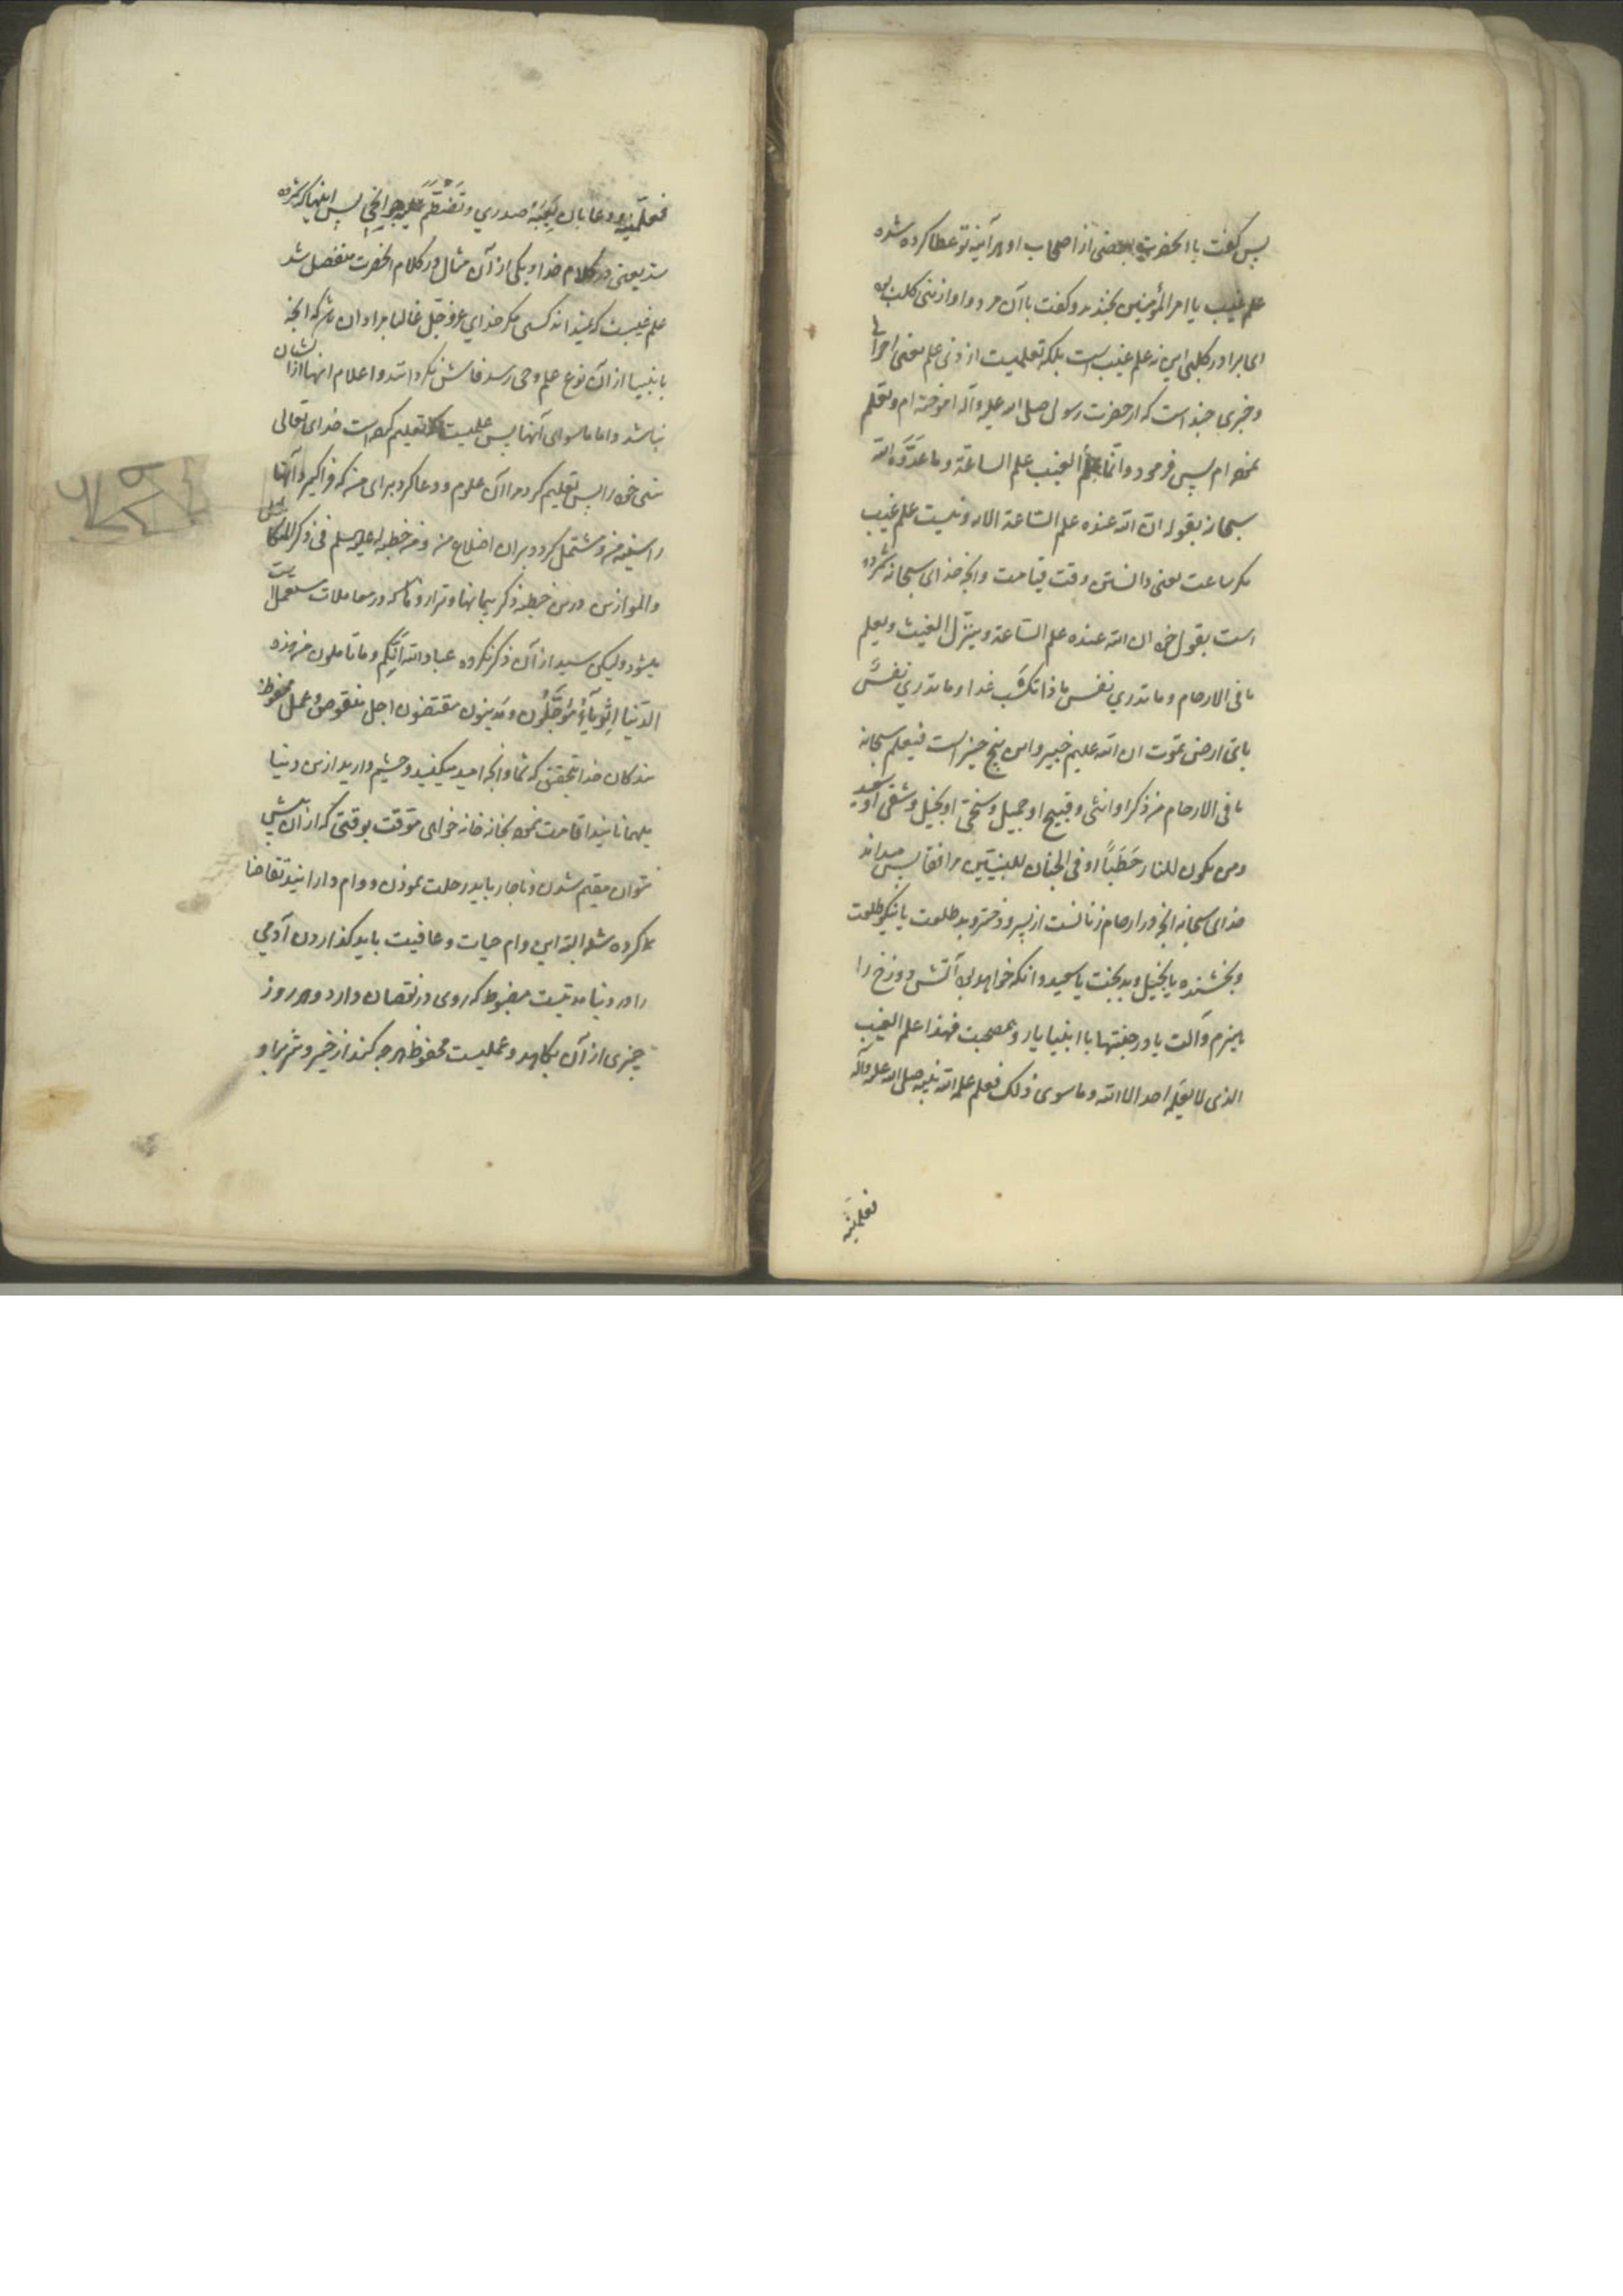 پس گفت با آنحضرت بعضی از اصحاب او هر آینه تو عطا کرده شده
علم غیب یا امیر المؤمنین بخندید و گفت با آن مرد و او از بنی کلب بود
ای برادر کلبی این نه علم غیب است بلکه تعلمیست از ذی علم یعنی اجرای
و خبری چند است که از حضرت رسول صلی الله علیه وآله آموخته ام و تعلم
نموده ام پس فرمود وانما علم الغیب علم الساعة وما عدده الله
سبحانه بقوله ان الله عنده علم الساعة الایه و نیست علم غیب
مگر ساعت یعنی دانستن وقت قیامت و آنچه خدای سبحانه شمرده
است بقول خود ان الله عنده علم الساعة وینزل الغیث ویعلم
ما فی الارحام وما تدری نفس ماذا تکسب غدا وما تدری نفس
بای ارض تموت ان الله علیم خبیر و این پنج چیز است فیعلم سبحانه
ما فی الارحام من ذکر او انثی و قبیح او جمیل و سخی او بخیل و شقی او سعید
ومن یکون للنار حطبا او فی الجنان للنبیین مرافقا پس میداند
خدای سبحانه آنچه در ارحام زنانست از پسر و دختر و بد طلعت یا نیکو طلعت
و بخشنده یا بخیل و بدبخت یا سعید و آنکه خواهد بود آتش دوزخ را
هیزم و آلت یا در جنتها با انبیا یار و هم صحبت فهذا علم الغیب
الذی لا یعلمه احد الا الله وما سوی ذلک فعلم علمه الله نبیه صلی الله علیه وآله
فعلمنیه
فعلمنیه ودعا بان یعیه صدری وتضطم علیه جوانحی پس اینها که شمرده
شد یعنی در کلام خدا و یکی از آن مثال در کلام آنحضرت مفصل شد
علم غیبست که نمیداند کسی مگر خدای عز و جل غالبا مراد آن باشد که آنچه
بانبیا از آن نوع علم وحی رسد فاش نگردانند و اعلام آنها از ایشان
نباشد و اما ماسوای آنها پس علمیست که تعلیم کرده است خدای تعالی
نبی خود را پس تعلیم کرد مرا آن علوم و دعا کرد برای من که فراگیرد آنها
را سینه من و مشتمل گردد بران اضلاع من ومن خطبة له علیه السلم فی ذکر المکائیل
والموازین درین خطبه ذکر پیمانها و ترازوها که در معاملات مستعملست
میشود ولیکن سید از آن ذکر نکرده عباد الله انکم وما تاملون من هذه
الدنیا اثویاء مؤجلون ومدینون مقتضون اجل منقوص وعمل محفوظ
بندگان خدا بتحقیق که شما و آنچه امید میکنید و چشم دارید ازین دنیا
میهمانانید اقامت نموده بخانه خدای موقت بوقتی که از آن بیش
نتوان مقیم شدن و ناچار باید رحلت نمودن و وام دارانید تقاضا
کرده شده البته این وام حیات و عافیت باید گذاردن آدمی
را در دنیا مدتیست مضبوط که روی در نقصان دارد و هر روز
چیزی از آن بکاهد و عملیست محفوظ هر چه کند از خیر و شر برای او